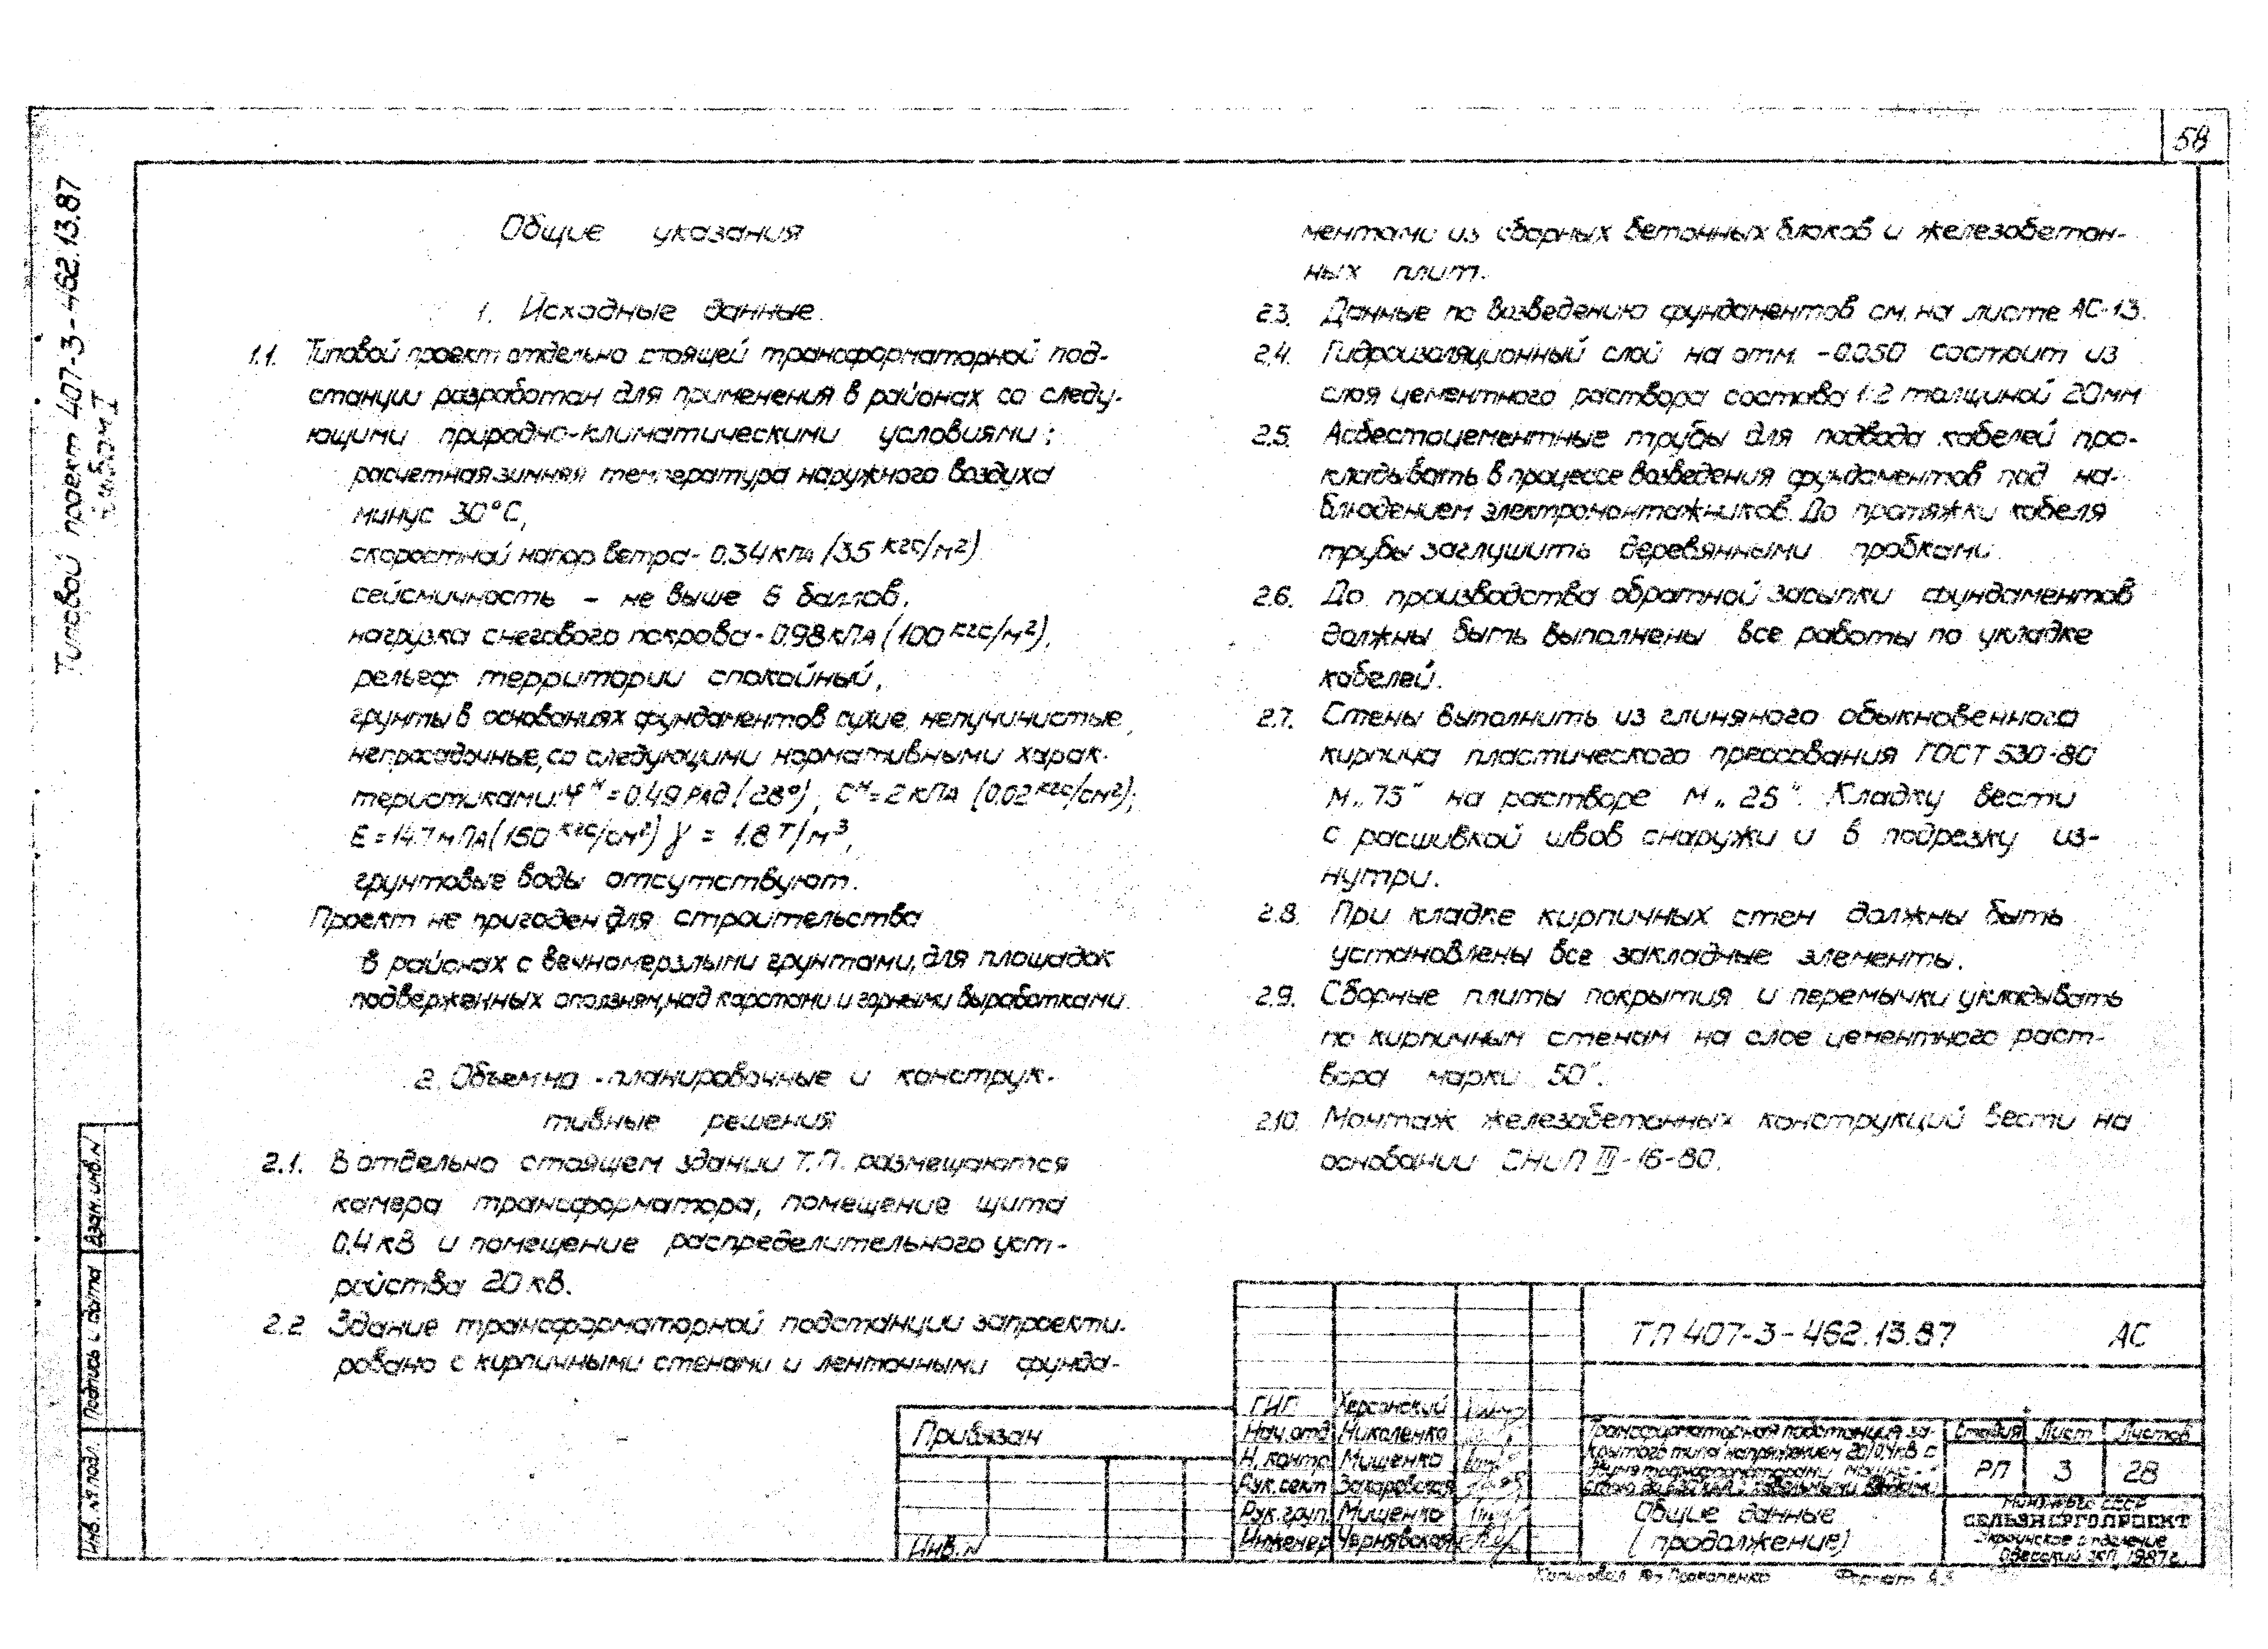 58
Типовой проект 407-3-462.13.87
Альбом I
Общие указания
1. Исходные данные.
1.1. Типовой проект отдельно стоящей трансформаторной под-
станции разработан для применения в районах со следу-
ющими природно-климатическими условиями:
расчетная зимняя температура наружного воздуха
минус 30°С,
скоростной напор ветра - 0.34 кПа /35 кгс/м²)
сейсмичность - не выше 6 баллов,
нагрузка снегового покрова - 0.98 кПа (100 кгс/м²),
рельеф территории спокойный,
грунты в основаниях фундаментов сухие, непучинистые,
непросадочные, со следующими нормативными харак-
теристиками: φᴴ = 0.49 рад (28°), Сᴴ = 2 кПа (0.02 кгс/см²);
Е = 14.7 мПа (150 кгс/см²) γ = 1.8 Т/м³,
грунтовые воды отсутствуют.
Проект не пригоден для строительства
в районах с вечномерзлыми грунтами, для площадок
подверженных оползням, над карстами и горными выработками.
2. Объемно-планировочные и конструк-
тивные решения
2.1. В отдельно стоящем здании Т.П. размещаются
камера трансформатора, помещение щита
0.4 кВ и помещение распределительного уст-
ройства 20 кВ.
2.2 Здание трансформаторной подстанции запроекти-
ровано с кирпичными стенами и ленточными фунда-
ментами из сборных бетонных блоков и железобетон-
ных плит.
2.3. Данные по возведению фундаментов см. на листе АС-13.
2.4. Гидроизоляционный слой на отм. -0.050 состоит из
слоя цементного раствора состава 1:2 толщиной 20мм
2.5. Асбестоцементные трубы для подвода кабелей про-
кладывать в процессе возведения фундаментов под на-
блюдением электромонтажников. До протяжки кабеля
трубы заглушить деревянными пробками.
2.6. До производства обратной засыпки фундаментов
должны быть выполнены все работы по укладке
кабелей.
2.7. Стены выполнить из глиняного обыкновенного
кирпича пластического прессования ГОСТ 530-80
М „75" на растворе М „25". Кладку вести
с расшивкой швов снаружи и в подрезку из-
нутри.
2.8. При кладке кирпичных стен должны быть
установлены все закладные элементы.
2.9. Сборные плиты покрытия и перемычки укладывать
по кирпичным стенам на слое цементного раст-
вора марки 50".
2.10. Монтаж железобетонных конструкций вести на
основании СНиП III-16-80.
Взам. инв. N
Подпись и дата
Инв. № подл.
Привязан
Инв. N
ГИП Херсонский
Нач. отд Николенко
Н. контр Мищенко
Рук. сект Захаровская
Рук. груп. Мищенко
Инженер Чернявская
ТП 407-3-462.13.87 АС
Трансформаторная подстанция за-
крытого типа напряжением 20/0.4кВ с
Стадия Лист Листов
РП 3 28
Общие данные
(продолжение)
Минэнерго СССР
СЕЛЬЭНЕРГОПРОЕКТ
Украинское отделение
Одесский 1987 г.
Копировал Прокопенко Формат А3